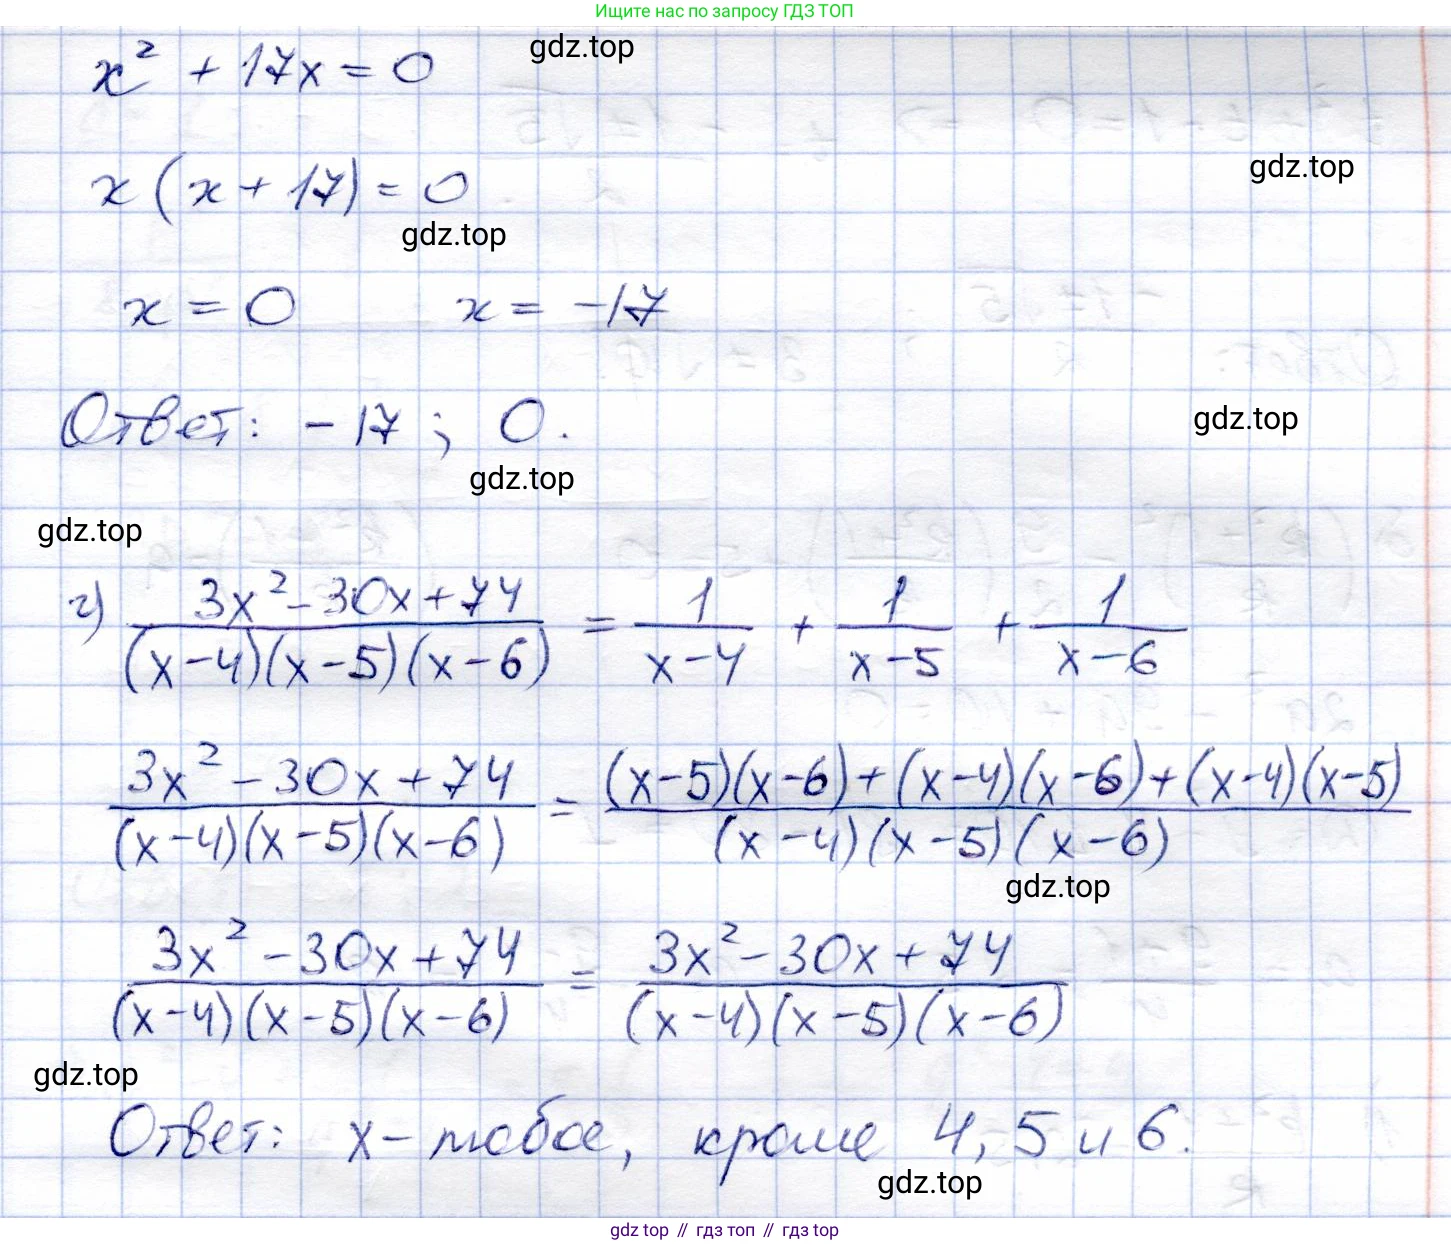 Ищите нас по запросу ГДЗ ТОП
x² + 17x = 0
gdz.top
x (x + 17) = 0
gdz.top
gdz.top
x = 0 x = -17
Ответ: -17 ; 0.
gdz.top
gdz.top
gdz.top
г) (3x² - 30x + 74)/((x-4)(x-5)(x-6)) = 1/(x-4) + 1/(x-5) + 1/(x-6)
(3x² - 30x + 74)/((x-4)(x-5)(x-6)) = ((x-5)(x-6) + (x-4)(x-6) + (x-4)(x-5))/((x-4)(x-5)(x-6))
gdz.top
(3x² - 30x + 74)/((x-4)(x-5)(x-6)) = (3x² - 30x + 74)/((x-4)(x-5)(x-6))
gdz.top
Ответ: x - любое, кроме 4, 5 и 6.
gdz.top
gdz top // гдз топ // гдз top